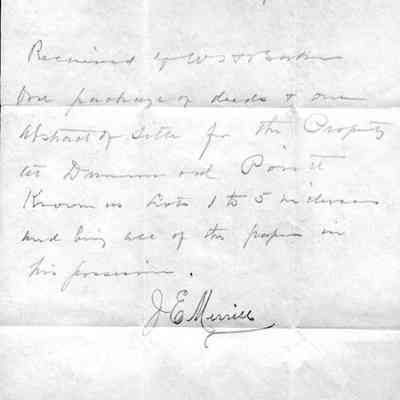 Received of W S H
One package of deeds & one
Abstract of Title for the Property
at Drummond Point
Known as Lots 1 to 5 inclusive
and being all of the papers in
his possession.
J E Merrill